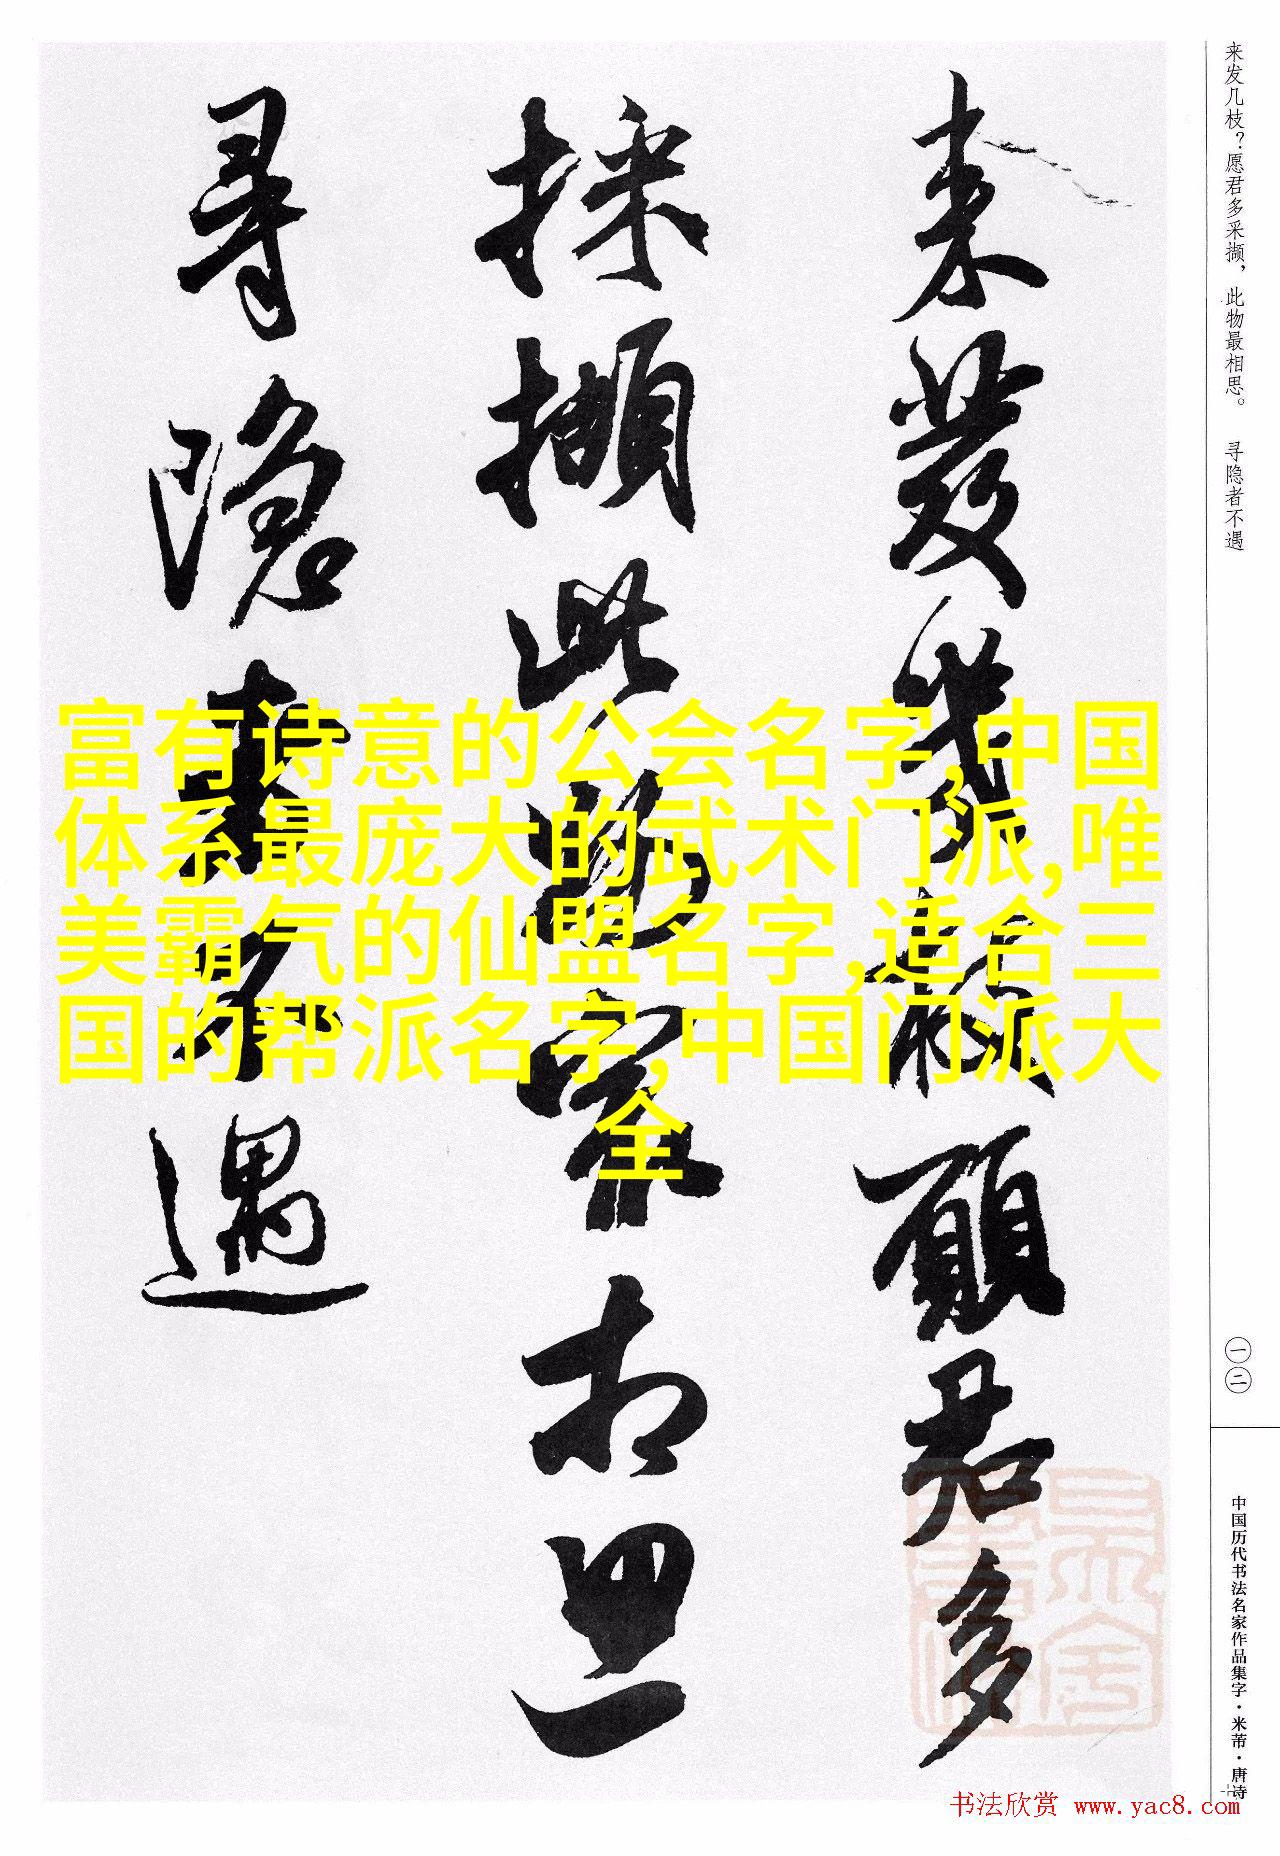 来发几枝？愿君多采撷，此物最相思。 寻隐者不遇
一二
中国历代书法名家作品集字·米芾·唐诗
来發幾枝願君多
採擷此物最相思
尋隱者不遇
富有诗意的公会名字,中国
体系最庞大的武术门派,唯
美霸气的仙盟名字,适合三
国的帮派名字,中国门派大
全
书法欣赏 www.yac8.com